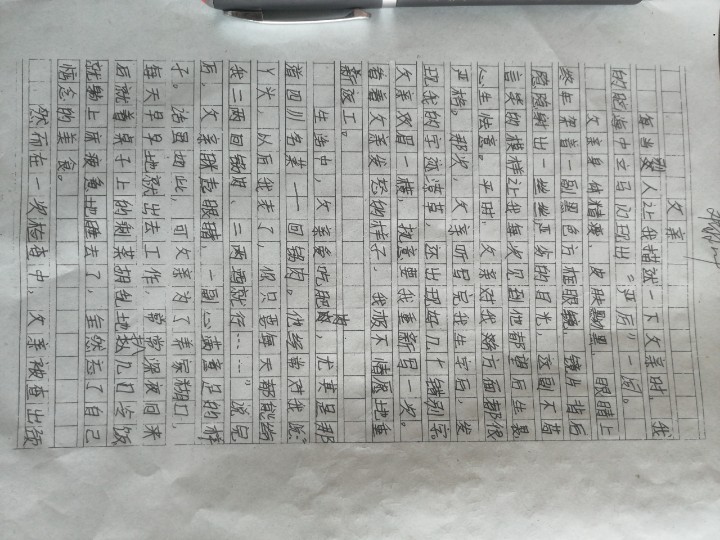 父亲
每当别人让我描述一下父亲时，我
的脑海中立马闪印出“严厉”一词。
父亲身体精瘦、皮肤黝黑，眼睛上
终生架着一副黑色方框眼镜，镜片背后
隐隐射出一丝丝严厉的目光，这副不苟
言笑的模样让我每次见到他都望而生畏
心生怯意。平时，父亲对我各方面都很
严格。那次，父亲听写完我生字后，发
现我的字迹潦草，还出现好几个错别字。
父亲双眉一横，执意要我重新写一次。
看着父亲发怒的样子，我极不情愿地重
新返工。
生活中，父亲爱吃肥肉，尤其是那
道四川名菜——回锅肉。他经常对我说“
丫头，以后我老了，你只要每天都能给
我二两回锅肉、二两酒就行……”说完
后，父亲眯起眼睛，一副心满意足的样
子。话虽如此，可父亲为了养家糊口，
每天早早地就出去工作，常常深夜回来
后就着桌子上的剩菜拥包地扒几口冷饭
就躺上床疲惫地睡去了，全然丢了自己
惦念的美食。
然而在一次检查中，父亲被查出颈